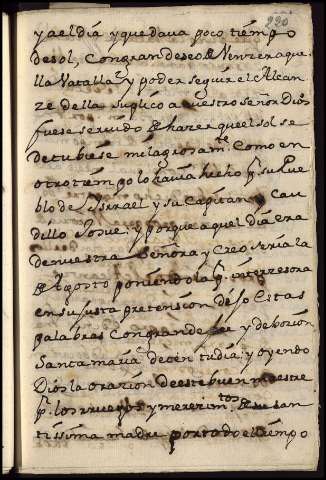 220
ya el dia y quedava poco tiempo
de sol, Con gran deseo de Venzer aque
lla Vatalla, y poder seguir el Alcan
ze della suplico a nuestro Señor Dios
fuese servido de hazer que el sol se
detubiese milagrosam.te Como en
otro tiempo lo havia hecho p.r su Pue
blo de Ysrrael y su Capitan y Cau
dillo Josue; y porque aquel dia era
de nuestra Señora y Creo seria la
de Agosto poniendola p.r interzesora
en su justa pretension dijo estas
palabras Con grande fee y deboçion
Santa maria deten tu dia; y oyendo
Dios la oraçion de este buen maestre
p.r los rruegos y merezim.tos de su san
tissima madre por todo el tiempo